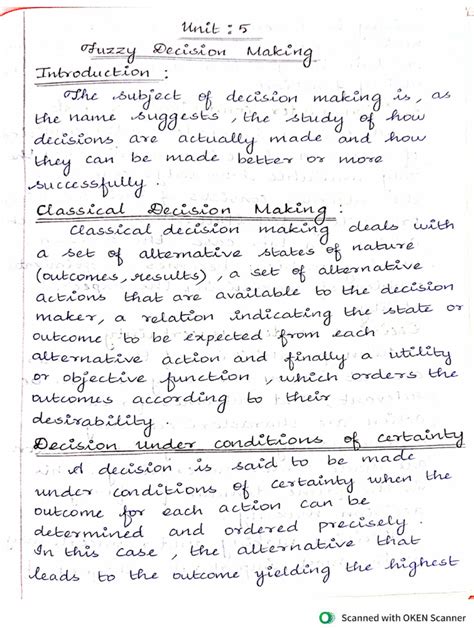 Unit : 5
Fuzzy Decision Making
Introduction :
The subject of decision making is, as
the name suggests, the study of how
decisions are actually made and how
they can be made better or more
successfully.
Classical Decision Making :
Classical decision making deals with
a set of alternative states of nature
(outcomes, results), a set of alternative
actions that are available to the decision
maker, a relation indicating the state or
outcome to be expected from each
alternative action and finally a utility
or objective function, which orders the
outcomes according to their
desirability.
Decision under conditions of certainty
A decision is said to be made
under conditions of certainty when the
outcome for each action can be
determined and ordered precisely.
In this case, the alternative that
leads to the outcome yielding the highest
Scanned with OKEN Scanner